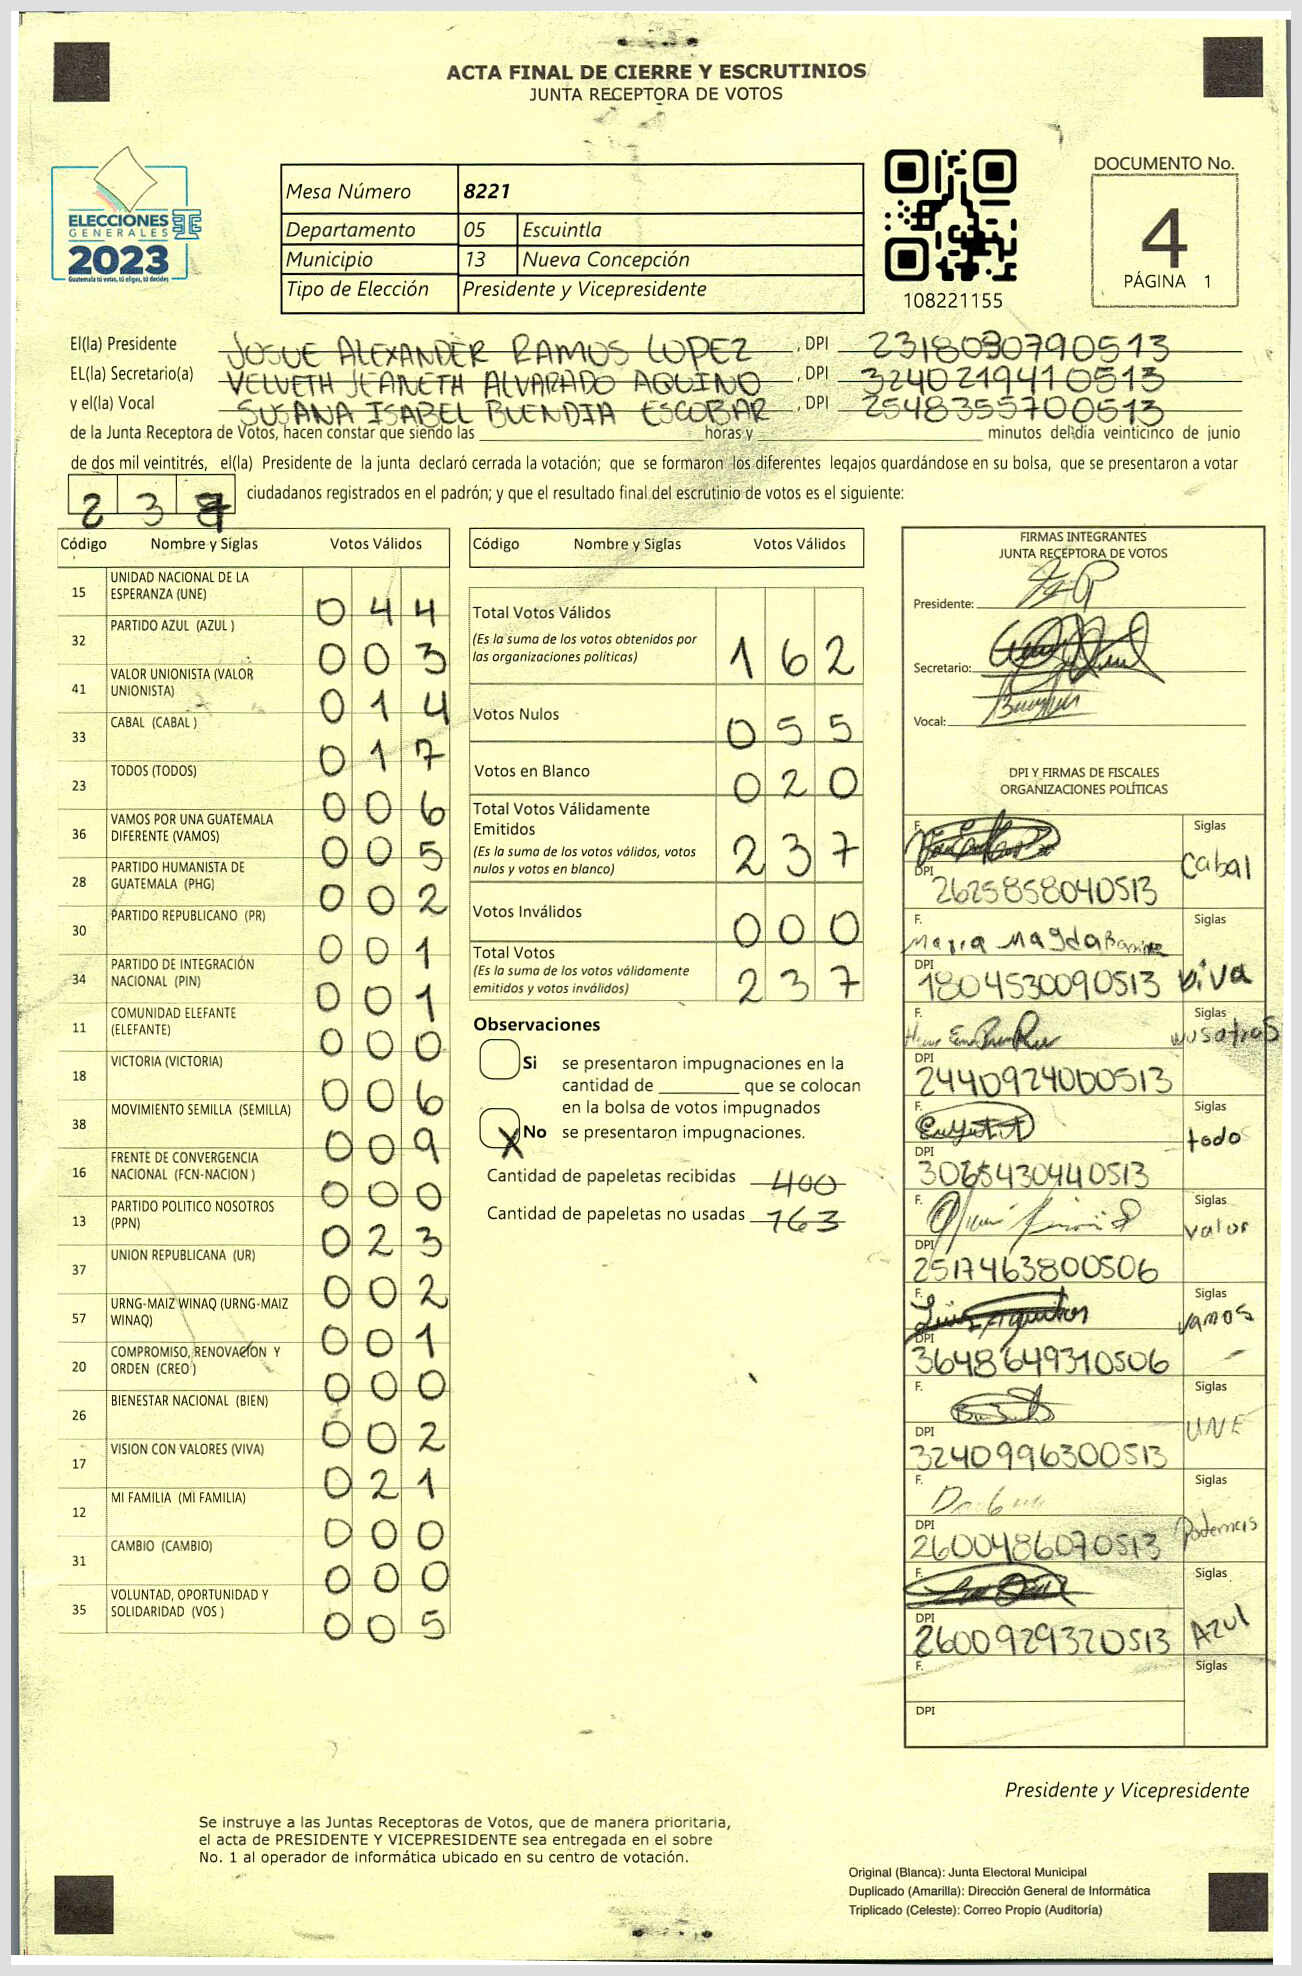 ACTA FINAL DE CIERRE Y ESCRUTINIOS
JUNTA RECEPTORA DE VOTOS
ELECCIONES
GENERALES
2023
Guatemala tú votas, tú eliges, tú decides
Mesa Número 8221
Departamento 05 Escuintla
Municipio 13 Nueva Concepción
Tipo de Elección Presidente y Vicepresidente
108221155
DOCUMENTO No.
4
PÁGINA 1
El(la) Presidente JOSUE ALEXANDER RAMOS LOPEZ , DPI 2318030790513
EL(la) Secretario(a) VELVETH JEANETH ALVARADO AQUINO , DPI 3240219410513
y el(la) Vocal SUSANA ISABEL BUENDIA ESCOBAR , DPI 2548355700513
de la Junta Receptora de Votos, hacen constar que siendo las horas y minutos del día veinticinco de junio
de dos mil veintitrés, el(la) Presidente de la junta declaró cerrada la votación; que se formaron los diferentes legajos guardándose en su bolsa, que se presentaron a votar
2 3 7 ciudadanos registrados en el padrón; y que el resultado final del escrutinio de votos es el siguiente:
Código Nombre y Siglas Votos Válidos
15 UNIDAD NACIONAL DE LA ESPERANZA (UNE) 0 4 4
32 PARTIDO AZUL (AZUL ) 0 0 3
41 VALOR UNIONISTA (VALOR UNIONISTA) 0 1 4
33 CABAL (CABAL ) 0 1 7
23 TODOS (TODOS) 0 0 6
36 VAMOS POR UNA GUATEMALA DIFERENTE (VAMOS) 0 0 5
28 PARTIDO HUMANISTA DE GUATEMALA (PHG) 0 0 2
30 PARTIDO REPUBLICANO (PR) 0 0 1
34 PARTIDO DE INTEGRACIÓN NACIONAL (PIN) 0 0 1
11 COMUNIDAD ELEFANTE (ELEFANTE) 0 0 0
18 VICTORIA (VICTORIA) 0 0 6
38 MOVIMIENTO SEMILLA (SEMILLA) 0 0 9
16 FRENTE DE CONVERGENCIA NACIONAL (FCN-NACION ) 0 0 0
13 PARTIDO POLITICO NOSOTROS (PPN) 0 2 3
37 UNION REPUBLICANA (UR) 0 0 2
57 URNG-MAIZ WINAQ (URNG-MAIZ WINAQ) 0 0 1
20 COMPROMISO, RENOVACIÓN Y ORDEN (CREO ) 0 0 0
26 BIENESTAR NACIONAL (BIEN) 0 0 2
17 VISION CON VALORES (VIVA) 0 2 1
12 MI FAMILIA (MI FAMILIA) 0 0 0
31 CAMBIO (CAMBIO) 0 0 0
35 VOLUNTAD, OPORTUNIDAD Y SOLIDARIDAD (VOS ) 0 0 5
Código Nombre y Siglas Votos Válidos
Total Votos Válidos
(Es la suma de los votos obtenidos por
las organizaciones políticas) 1 6 2
Votos Nulos 0 5 5
Votos en Blanco 0 2 0
Total Votos Válidamente
Emitidos
(Es la suma de los votos válidos, votos
nulos y votos en blanco) 2 3 7
Votos Inválidos 0 0 0
Total Votos
(Es la suma de los votos válidamente
emitidos y votos inválidos) 2 3 7
Observaciones
Si se presentaron impugnaciones en la
cantidad de que se colocan
en la bolsa de votos impugnados
X No se presentaron impugnaciones.
Cantidad de papeletas recibidas 400
Cantidad de papeletas no usadas 163
FIRMAS INTEGRANTES
JUNTA RECEPTORA DE VOTOS
Presidente:
Secretario:
Vocal:
DPI Y FIRMAS DE FISCALES
ORGANIZACIONES POLÍTICAS
F. Siglas
DPI 2625858040513 Cabal
F. Maria Magda Siglas
DPI 1804530090513 viva
F. Siglas
DPI 2440924060513 nosotros
F. Siglas
DPI 3065430440513 todos
F. Siglas
DPI 2517463800506 valor
F. Siglas
DPI 3648649310506 vamos
F. Siglas
DPI 3240996300513 UNE
F. Siglas
DPI 2600486070513 Podemos
F. Siglas
DPI 2600929320513 Azul
F. Siglas
DPI
Presidente y Vicepresidente
Se instruye a las Juntas Receptoras de Votos, que de manera prioritaria,
el acta de PRESIDENTE Y VICEPRESIDENTE sea entregada en el sobre
No. 1 al operador de informática ubicado en su centro de votación.
Original (Blanca): Junta Electoral Municipal
Duplicado (Amarilla): Dirección General de Informática
Triplicado (Celeste): Correo Propio (Auditoría)